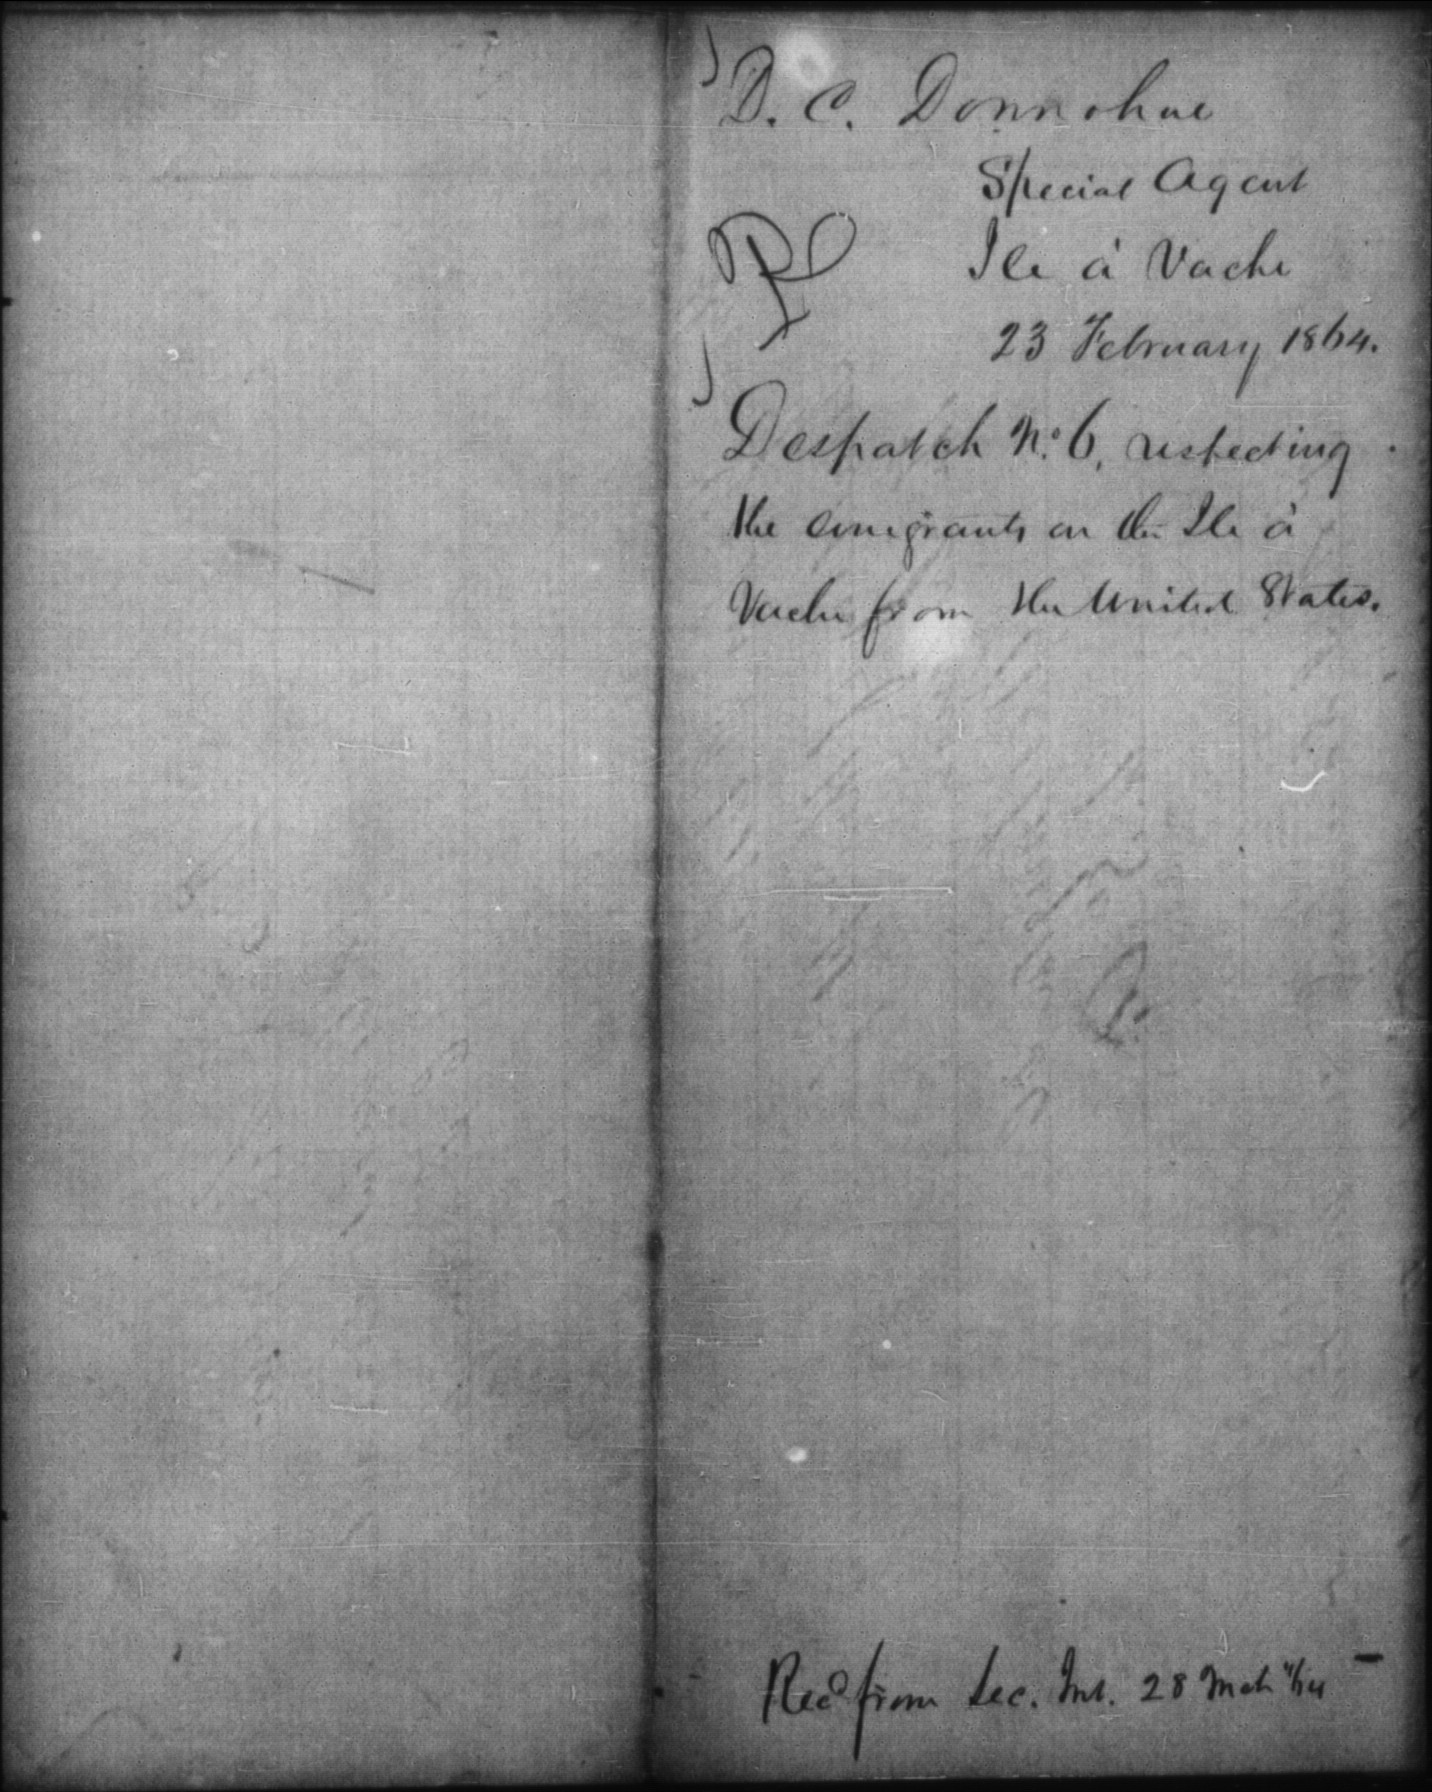 D. C. Donnohue
Special Agent
Ile à Vache
23 February 1864.
Despatch No. 6, respecting
the emigrants on the Ile à
Vache from the United States.
Recd from Sec. Int. 28 Mch